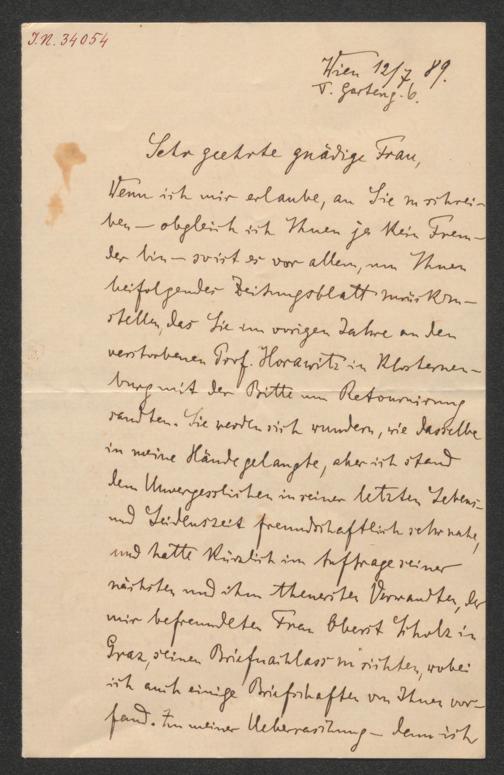 I.N. 34054
Wien 12/7 89.
V. Garteng. 6.
Sehr geehrte gnädige Frau,
Wenn ich mir erlaube, an Sie zu schrei-
ben — obgleich ich Ihnen ja kein Frem-
der bin — so ist es vor allem, um Ihnen
beifolgendes Zeitungsblatt zurückzu-
stellen, das Sie im vorigen Jahre an den
verstorbenen Prof. Horawitz in Klosterneu-
burg mit der Bitte um Retournirung
sandten. Sie werden sich wundern, wie dasselbe
in meine Hände gelangte, aber ich stand
dem Unvergesslichen in seiner letzten Lebens-
und Leidenszeit freundschaftlich sehr nahe,
und hatte kürzlich im Auftrage seiner
nächsten und ihm theuersten Verwandten, der
mir befreundeten Frau Oberst Scholz in
Graz, seinen Briefnachlass zu sichten, wobei
ich auch einige Briefschaften von Ihnen vor-
fand. Zu meiner Ueberraschung — denn ich